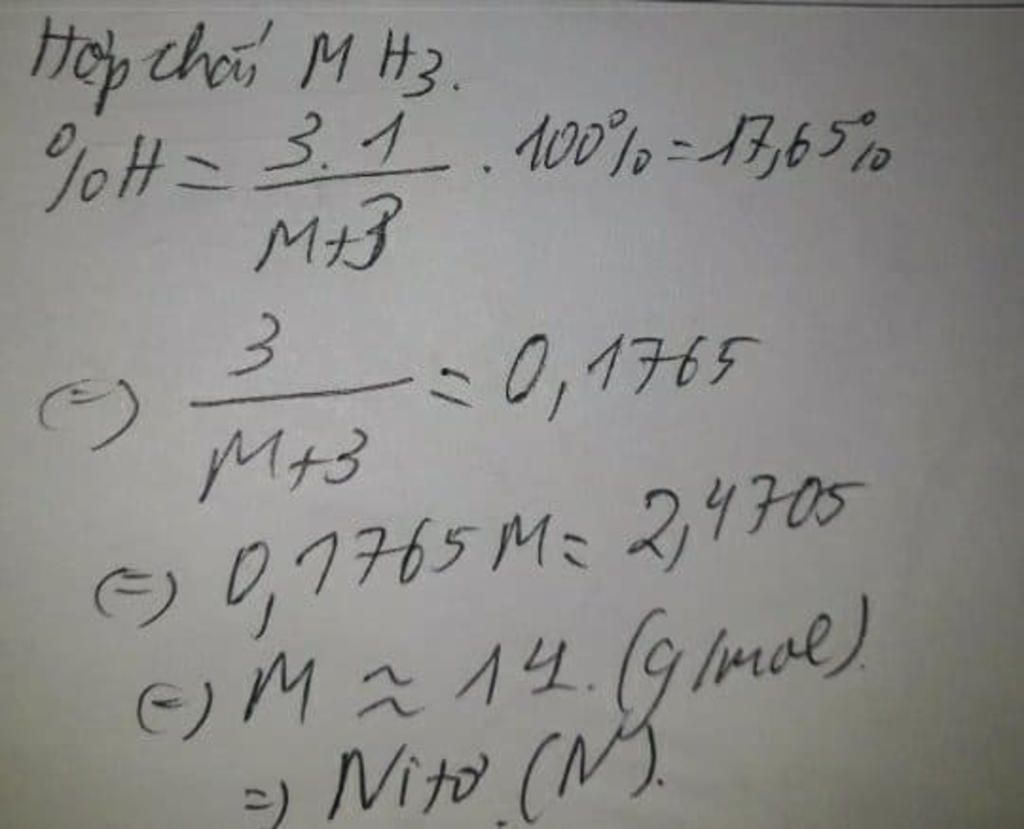 Hợp chất MH3.
%H = 3.1 / M+3 . 100% = 17,65%
(=) 3 / M+3 = 0,1765
(=) 0,1765M = 2,4705
(=) M ≈ 14. (g/mol).
=) Nitơ. (N).